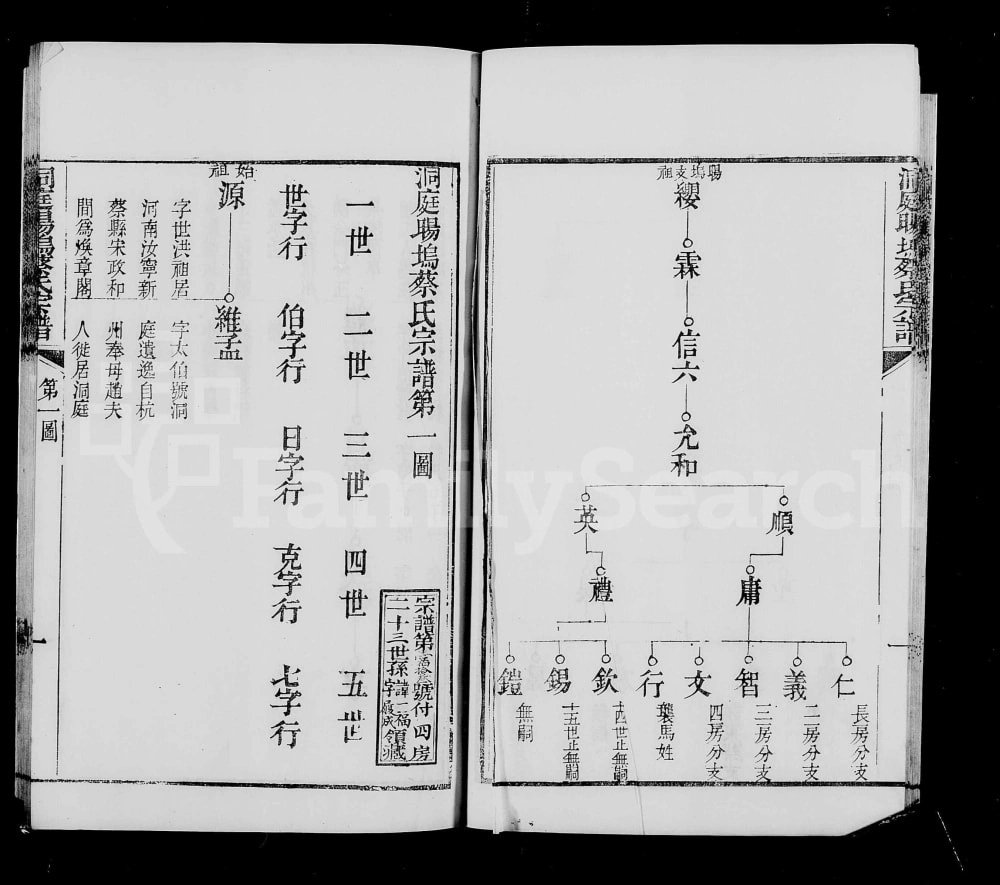 暘塢支祖
纓
霖
信六
允和
順
英
庸
禮
仁
長房分支
義
二房分支
智
三房分支
文
四房分支
行
襲馬姓
欽
十四世止無嗣
錫
十五世止無嗣
鎧
無嗣
洞庭暘塢蔡氏宗譜
一
洞庭暘塢蔡氏宗譜第一圖
宗譜第號付四房
二十三世孫諱一福字成領藏
一世 二世 三世 四世 五世
世字行 伯字行 日字行 克字行 七字行
始祖
源
字世洪祖居
河南汝寧新
蔡縣宋政和
間為煥章閣
維孟
字太伯號洞
庭遺逸自杭
州奉母趙夫
人徙居洞庭
洞庭暘塢蔡氏宗譜
第一圖
一
FamilySearch